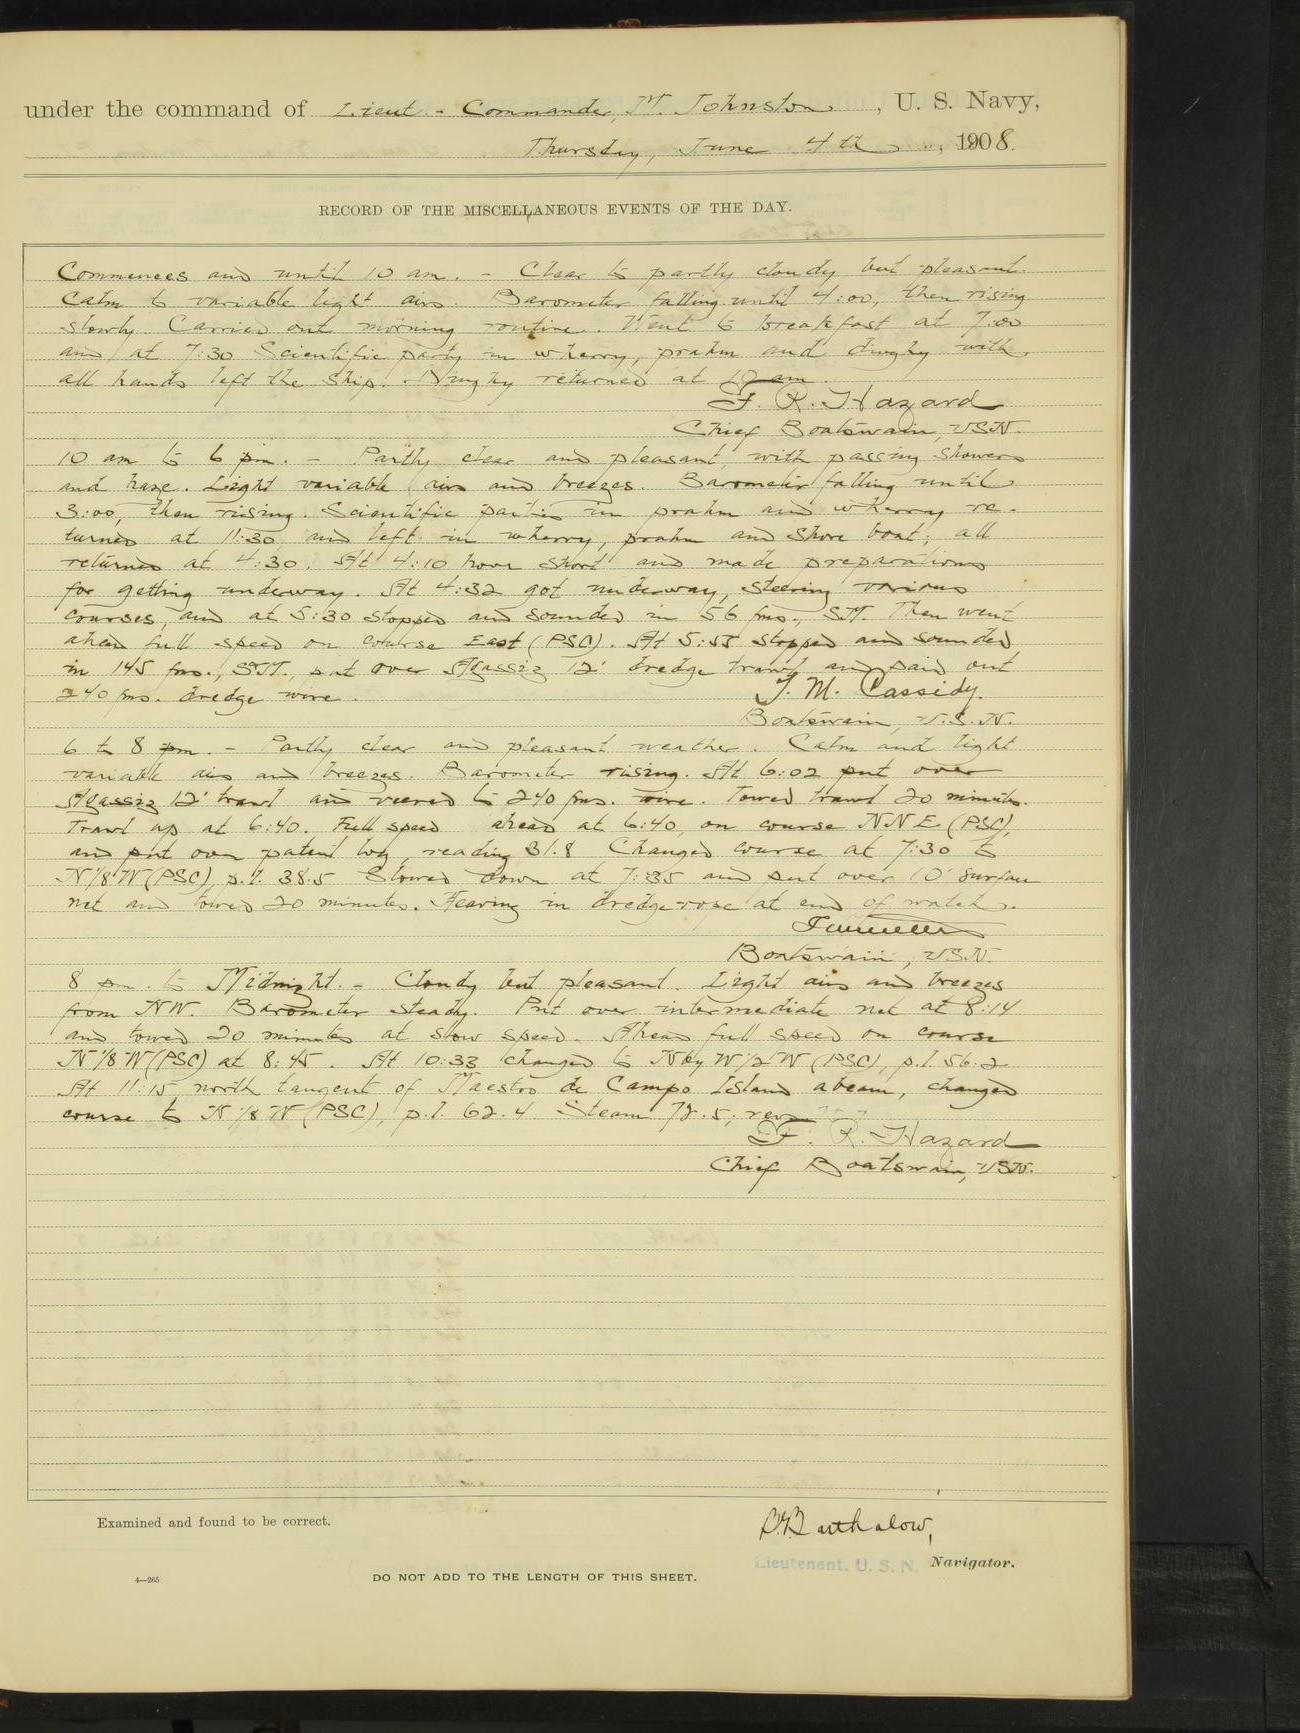 under the command of Lieut.- Commander M. Johnston, U. S. Navy,
Thursday, June 4th, 1908.
RECORD OF THE MISCELLANEOUS EVENTS OF THE DAY.
Commences and until 10 am. - Clear to partly cloudy but pleasant.
Calm to variable light airs. Barometer falling until 4:00, then rising
slowly. Carried out morning routine. Went to breakfast at 7:00
and at 7:30 Scientific party in wherry, prahm and dinghy with
all hands left the ship. Dinghy returned at 10 am.
F. R. Hazard
Chief Boatswain, USN.
10 am to 6 pm. - Partly clear and pleasant, with passing showers
and haze. Light variable airs and breezes. Barometer falling until
3:00, then rising. Scientific parties in prahm and wherry re-
turned at 11:30 and left in wherry, prahm and shore boat; all
returned at 4:30. At 4:10 hove short and made preparations
for getting underway. At 4:32 got underway, steering various
courses, and at 5:30 stopped and sounded in 56 fms., SM. Then went
ahead full speed on course East (PSC). At 5:55 stopped and sounded
in 145 fms., SM., put over Agassiz 12' dredge trawl and paid out
240 fms. dredge wire.
J. M. Cassidy.
Boatswain, U.S.N.
6 to 8 pm. - Partly clear and pleasant weather. Calm and light
variable airs and breezes. Barometer rising. At 6:02 put over
Agassiz 12' trawl and veered to 240 fms. wire. Towed trawl 20 minutes.
Trawl up at 6:40. Full speed ahead at 6:40, on course NNE (PSC),
and put over patent log, reading 31.8 Changed course at 7:30 to
N⅛W (PSC), p.l. 38.5 Slowed down at 7:35 and put over 10' surface
net and towed 20 minutes. Heaving in dredge-rope at end of watch.
Boatswain, USN.
8 pm. to Midnight. - Cloudy but pleasant. Light airs and breezes
from NW. Barometer steady. Put over intermediate net at 8:14
and towed 20 minutes at slow speed. Ahead full speed on course
N⅛W (PSC) at 8:45. At 10:33 changed to NbyW½W (PSC), p.l. 56.2
At 11:15 north tangent of Maestro de Campo Island abeam, changed
course to N⅛W (PSC), p.l. 62.4 Steam 72.5; revs
F. R. Hazard
Chief Boatswain, USN.
Examined and found to be correct.
Barthalow,
Lieutenant, U. S. N. Navigator.
4—265
DO NOT ADD TO THE LENGTH OF THIS SHEET.